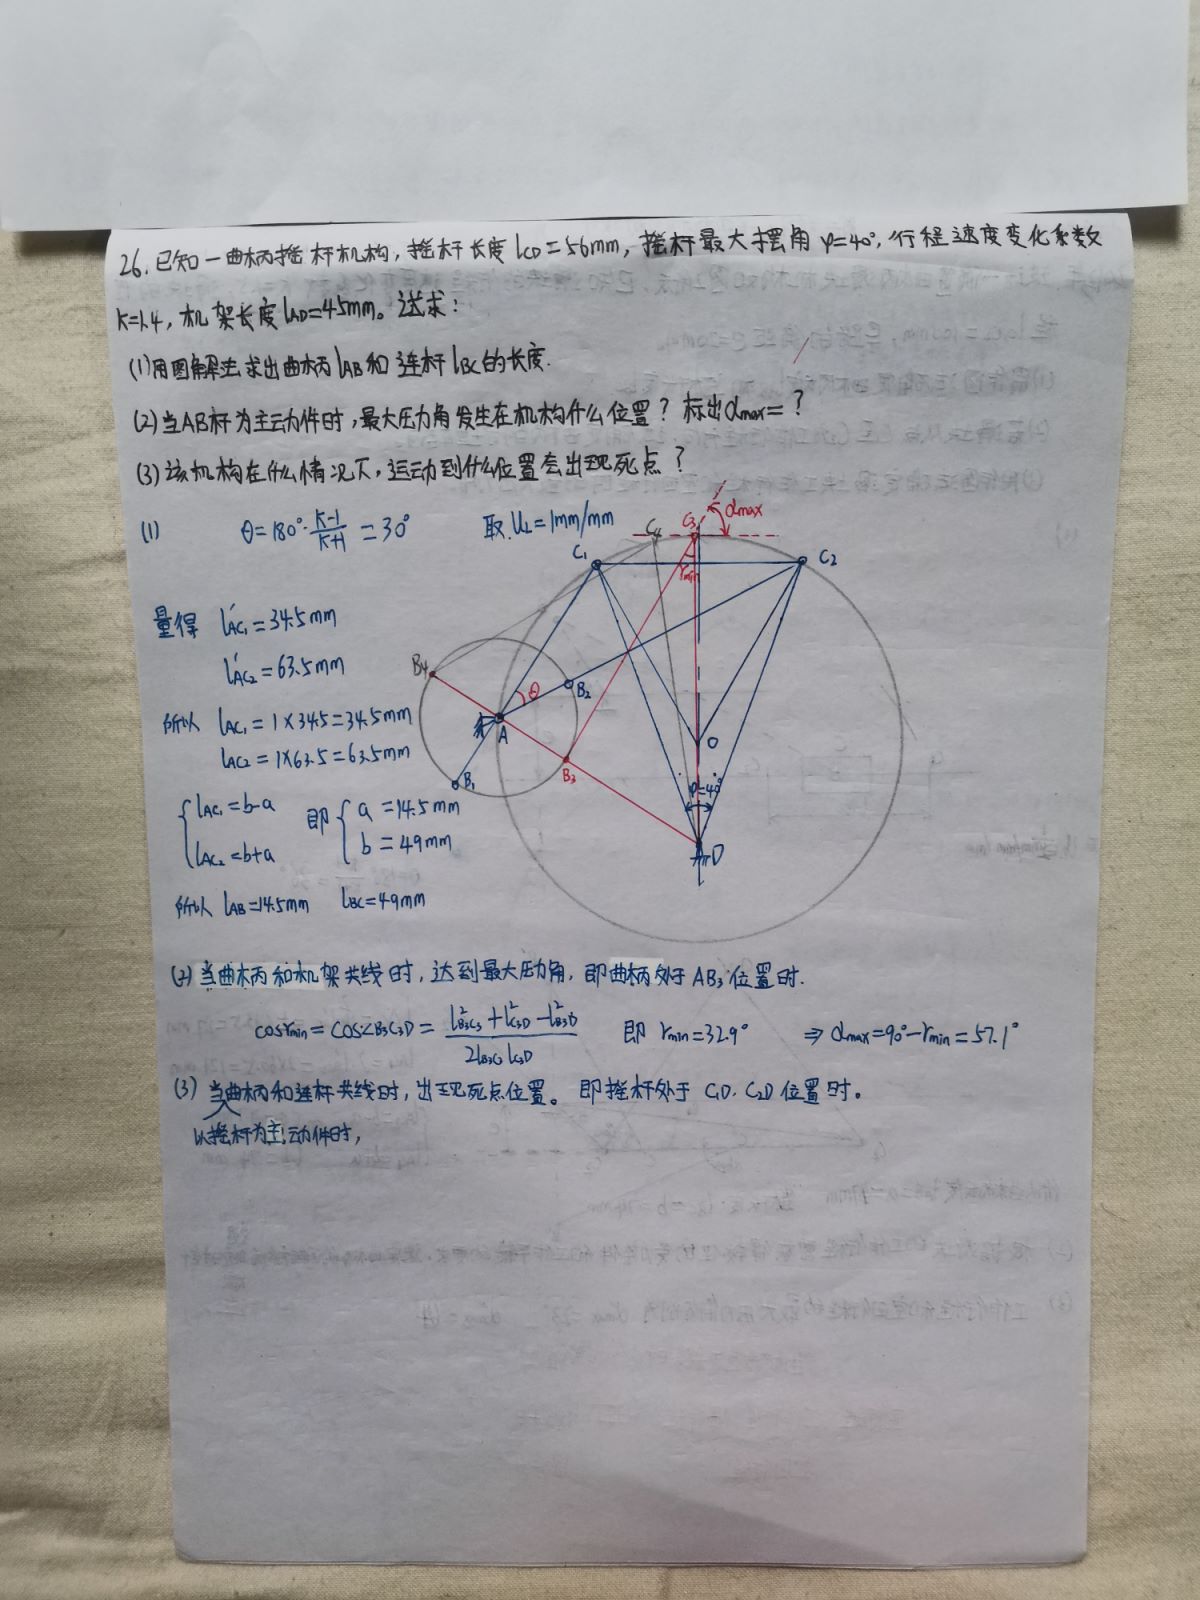 26.已知一曲柄摇杆机构,摇杆长度lCD=56mm,摇杆最大摆角φ=40°,行程速度变化系数
K=1.4,机架长度lAD=45mm。试求:
(1)用图解法求出曲柄lAB和连杆lBC的长度.
(2)当AB杆为主动件时,最大压力角发生在机构什么位置?标出αmax=?
(3)该机构在什么情况下,运动到什么位置会出现死点?
(1) θ=180°·K-1/K+1=30° 取UL=1mm/mm
C4 C3 αmax
C1 γmin C2
量得 l'AC1=34.5mm
l'AC2=63.5mm
B4 θ B2
所以 lAC1=1×34.5=34.5mm
lAC2=1×63.5=63.5mm
A O
B1 B3 φ=40°
{lAC1=b-a 即 {a=14.5mm
lAC2=b+a b=49mm
D
所以 lAB=14.5mm lBC=49mm
(2) 当曲柄和机架共线时,达到最大压力角,即曲柄处于AB3位置时.
cosγmin=cos∠B3C3D=l²B3C3+l²C3D-l²B3D/2lB3C3lC3D 即 γmin=32.9° ⇒αmax=90°-γmin=57.1°
(3) 当曲柄和连杆共线时,出现死点位置。即摇杆处于 C1D、C2D位置时。
以摇杆为主动件时,